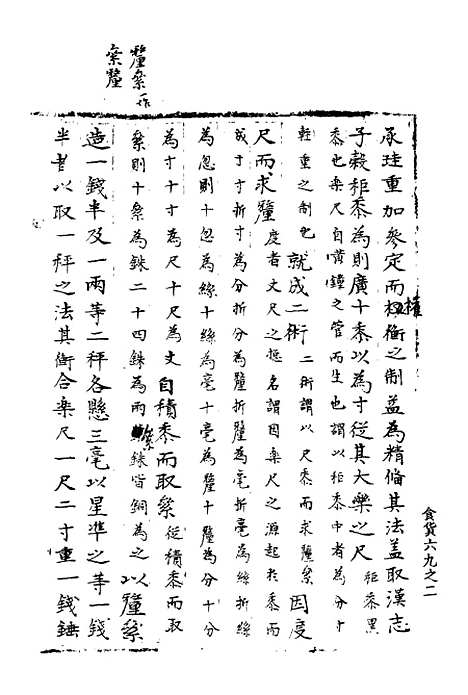 食貨六九之二
承珪重加參定而權衡之制益為精備其法蓋取漢志
子穀秬黍為則廣十黍以為寸從其大樂之尺秬黍黑
黍也樂尺自黃鐘之管而生也謂以秬黍中者為分寸
輕重之制也就成二術二術謂以尺黍而求釐絫因度
尺而求釐度者丈尺之總名謂因樂尺之源起於黍而
成于寸折寸為分折分為釐折釐為毫折毫為絲折絲
為忽則十忽為絲十絲為毫十毫為釐十釐為分十分
為寸十寸為尺十尺為丈自積黍而取絫從積黍而取
絫則十絫為銖二十四銖為兩絫銖皆銅為之以釐絫
造一錢半及一兩等二秤各懸三毫以星準之等一錢
半者以取一秤之法其衡合樂尺一尺二寸重一錢錘
釐絫一作
絫釐